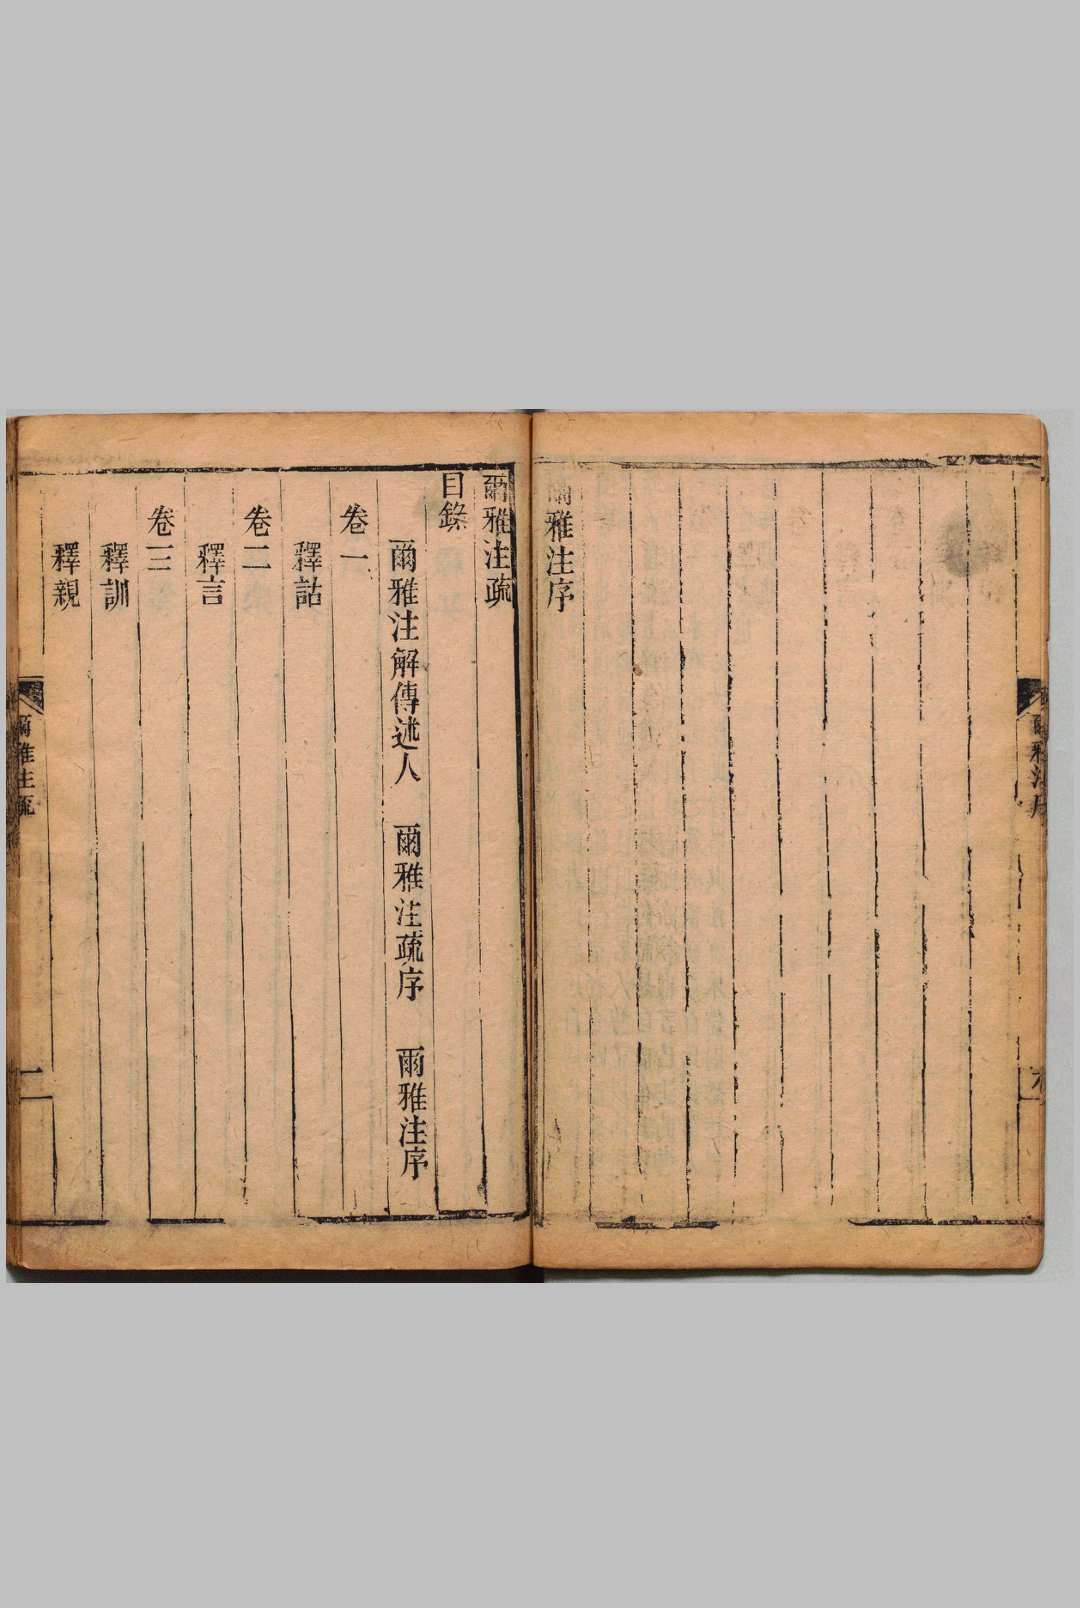 爾雅注序
爾雅注疏
目錄
爾雅注解傳述人　爾雅注疏序　爾雅注序
卷一
釋詁
卷二
釋言
卷三
釋訓
釋親
爾雅注疏